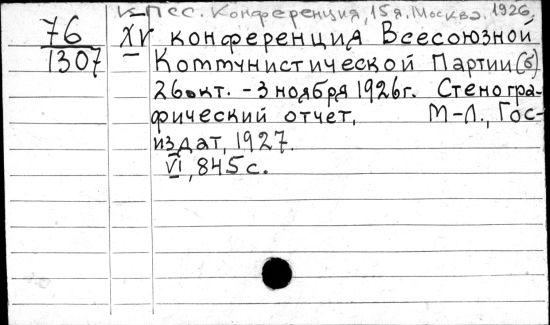 КПСС. Конференция, 15я. Москва. 1926.
76
1307
XV конференция Всесоюзной
Коммунистической Партии(б)
26 окт. - 3 ноября 1926г. Стеногра-
фический отчет, М-Л., Гос-
издат, 1927.
VI, 845с.